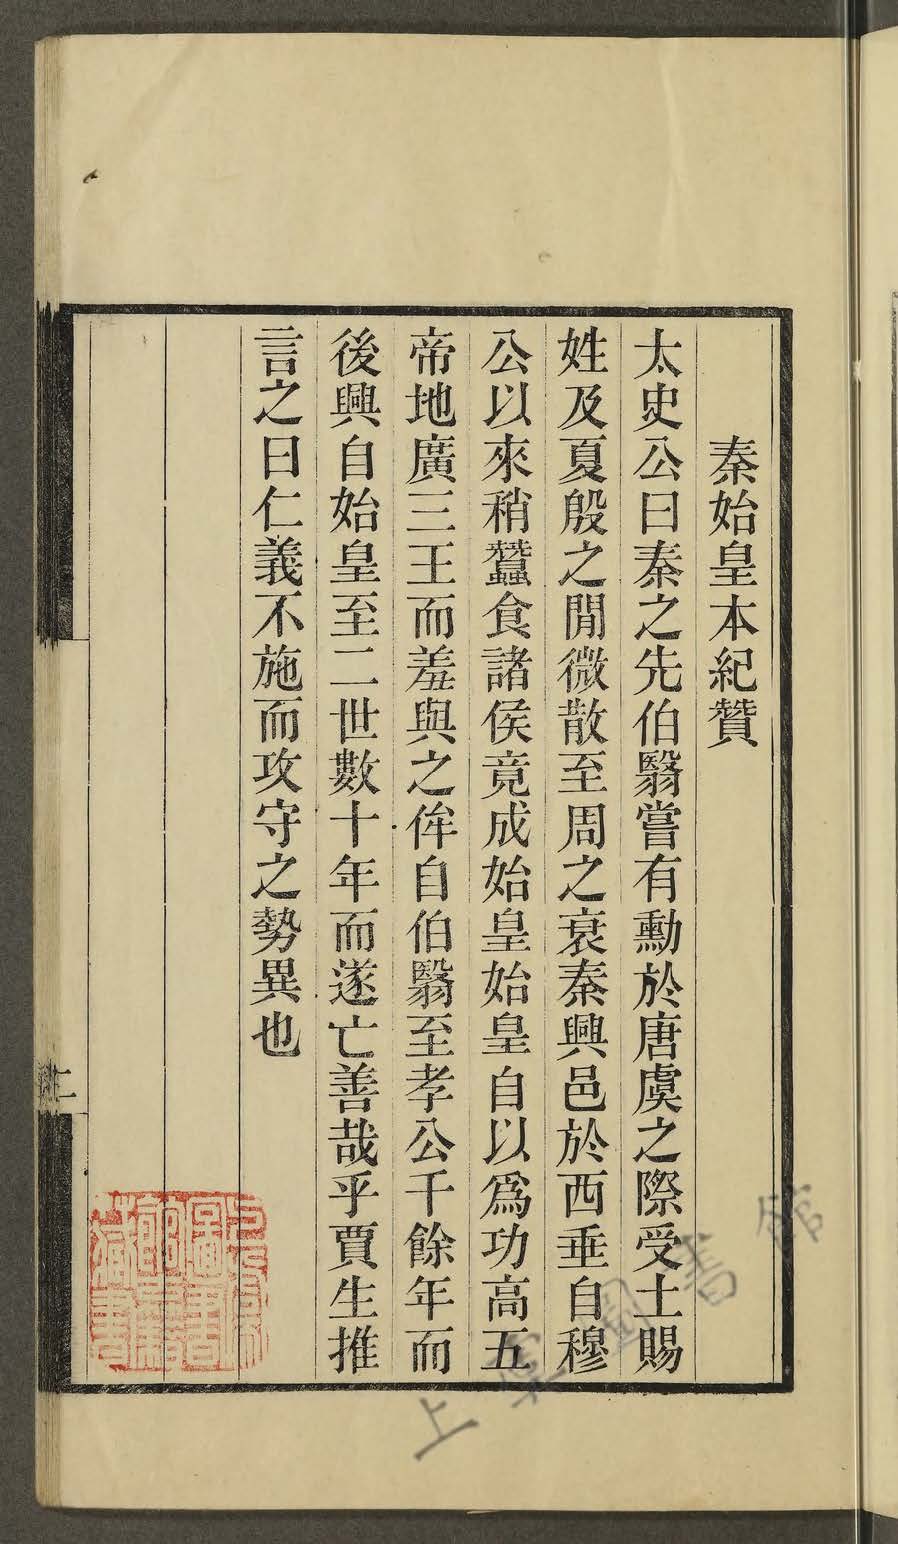 秦始皇本紀贊
太史公曰秦之先伯翳嘗有勳於唐虞之際受土賜
姓及夏殷之閒微散至周之衰秦興邑於西垂自穆
公以來稍蠶食諸侯竟成始皇始皇自以爲功高五
帝地廣三王而羞與之侔自伯翳至孝公千餘年而
後興自始皇至二世數十年而遂亡善哉乎賈生推
言之曰仁義不施而攻守之勢異也
上海圖書館